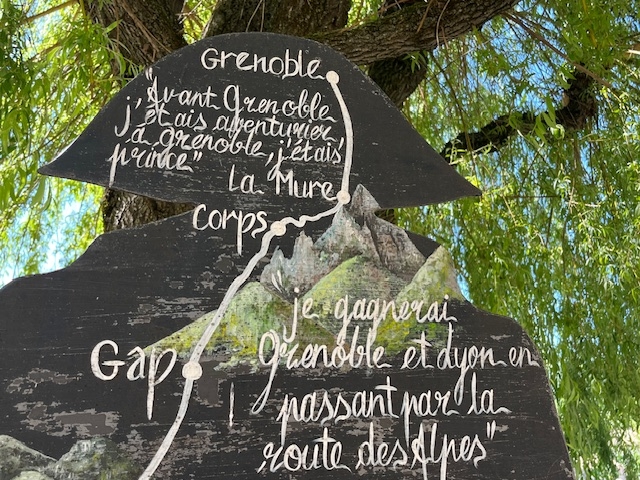 Grenoble
"Avant Grenoble
j'étais aventurier,
à grenoble, j'étais
prince"
La Mure
corps
Gap
"je gagnerai
Grenoble et dyon en
passant par la
route des Alpes"